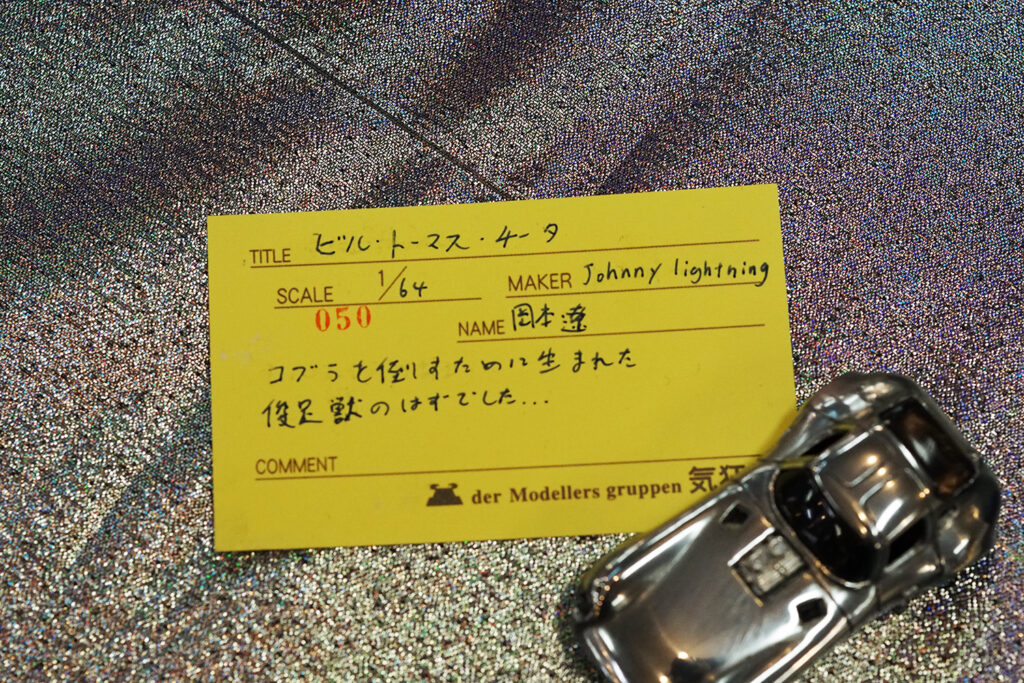 TITLE ビル・トーマス・チータ
SCALE 1/64 MAKER Johnny lightning
050 NAME 岡本遼
コブラを倒すために生まれた
俊足獣のはずでした...
COMMENT
der Modellers gruppen 気狂